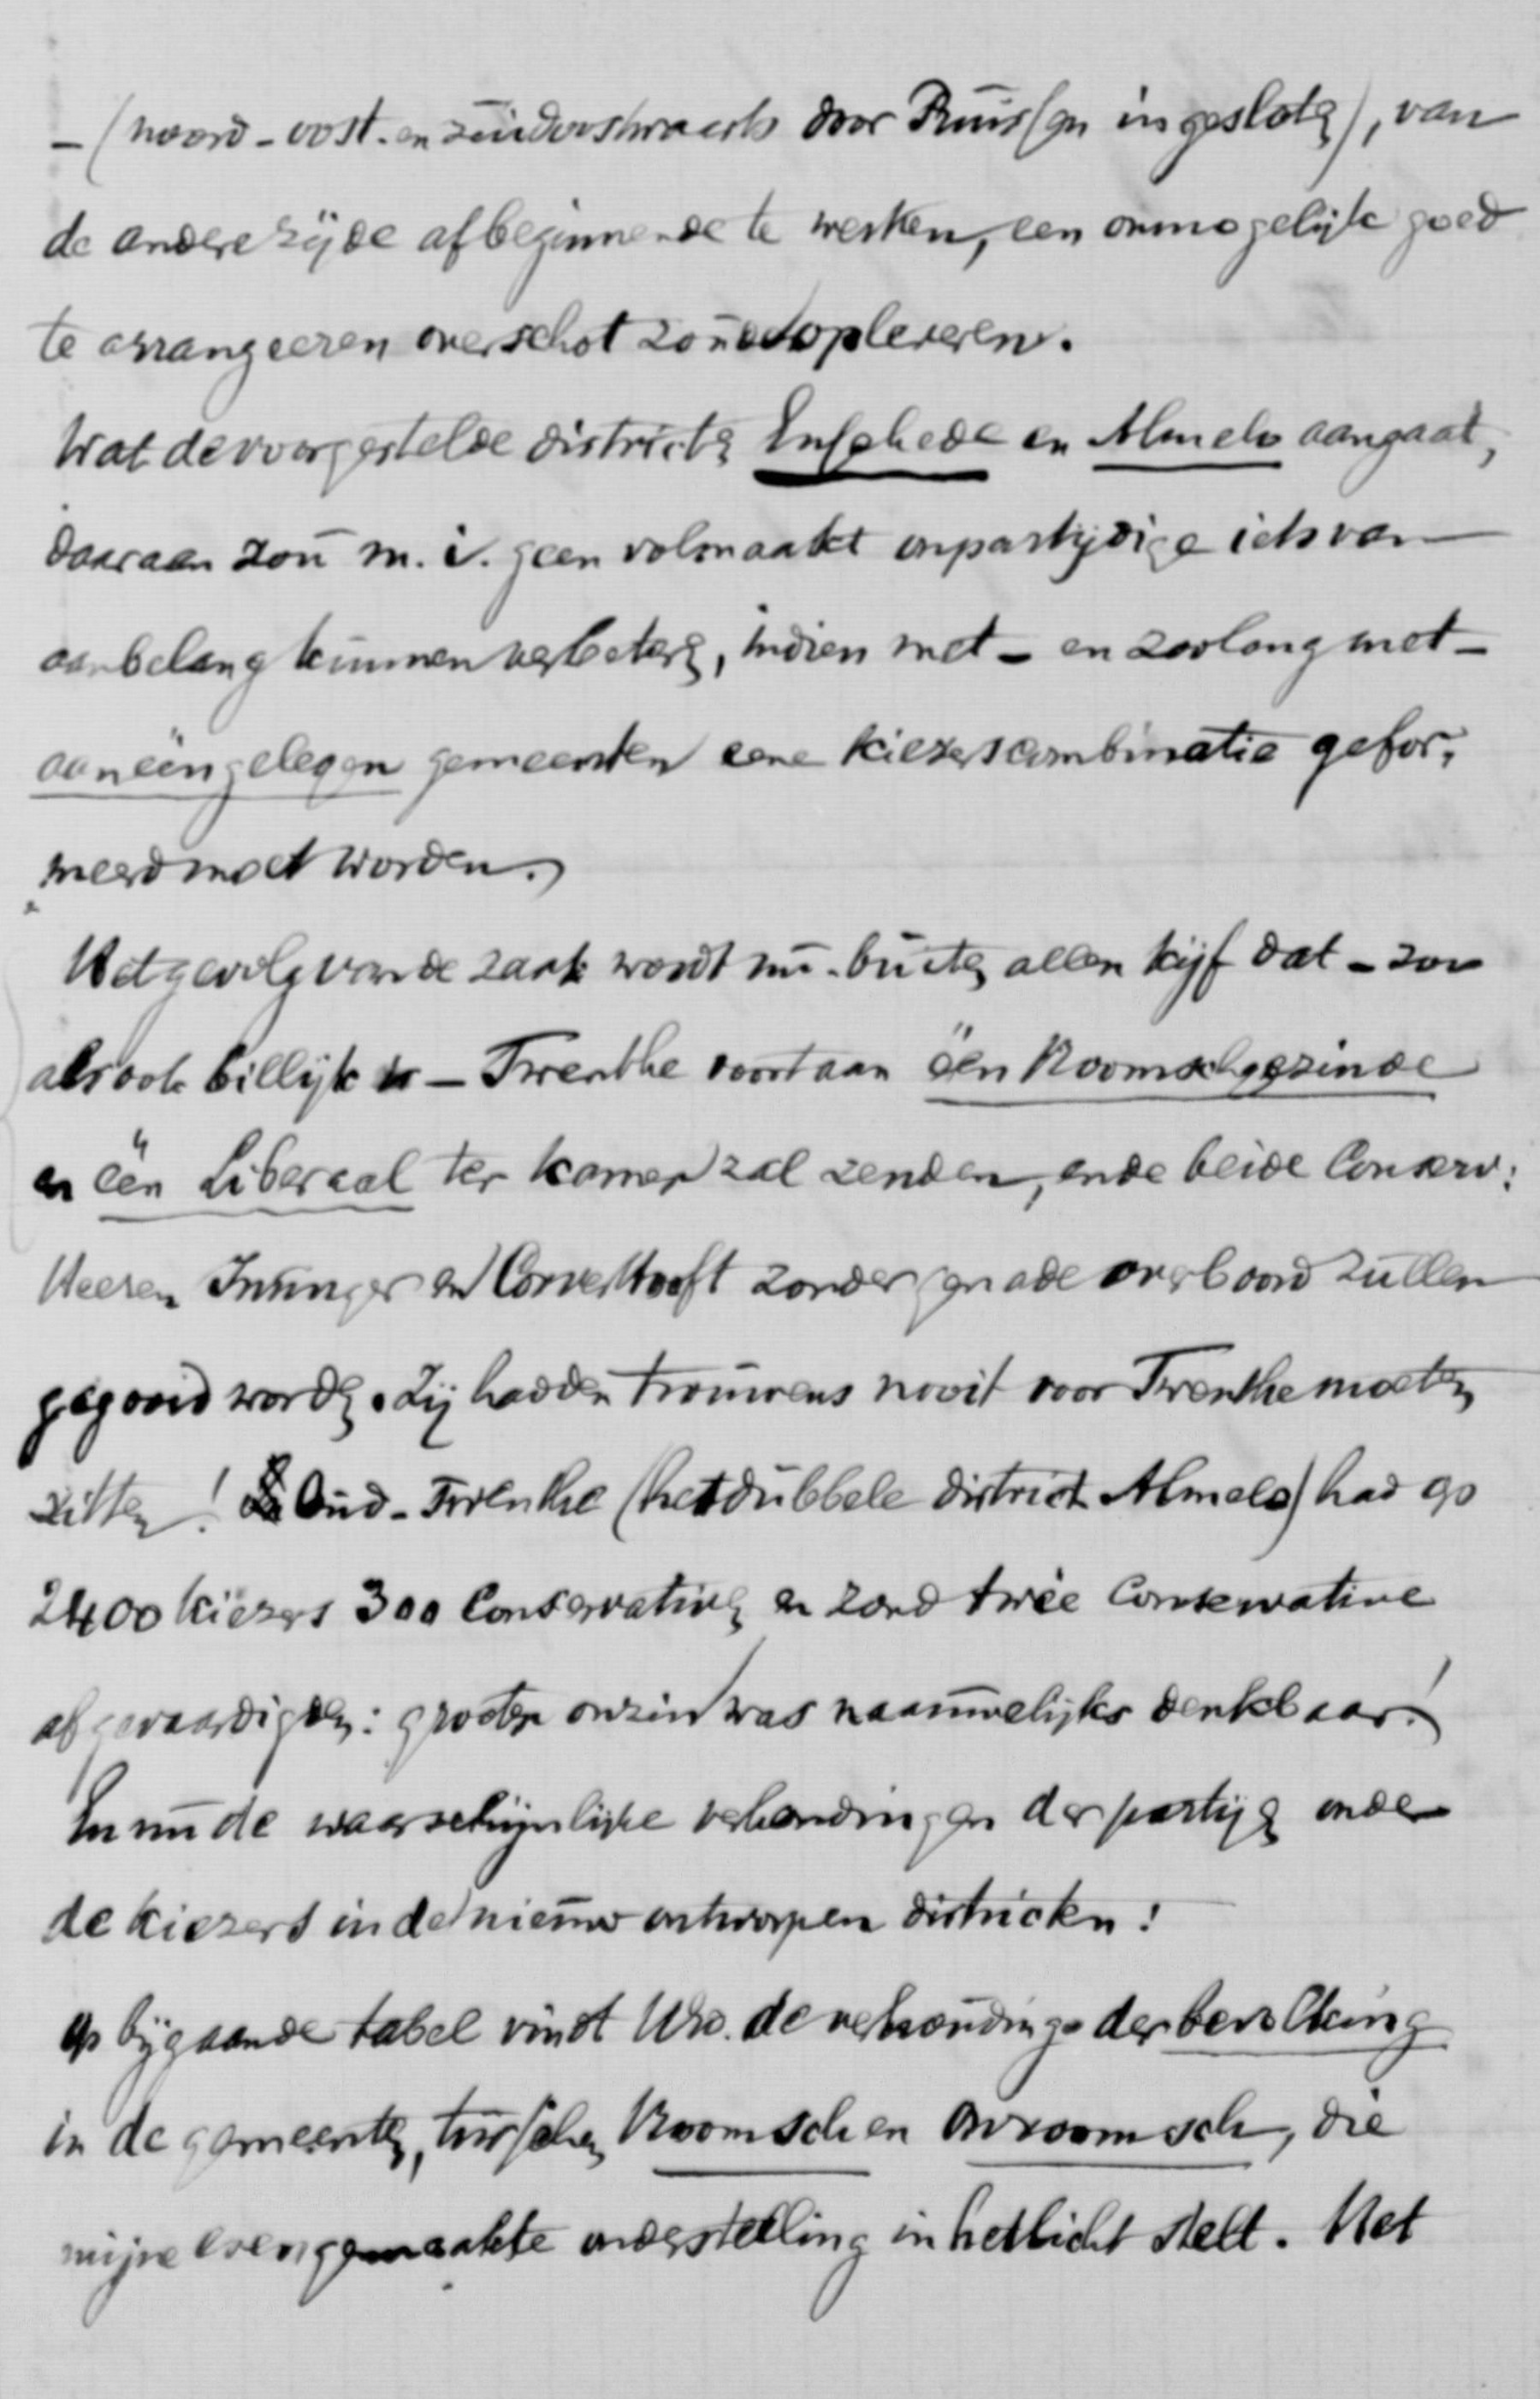 – (noord-oost- en zuidoostwaarts door Pruissen ingesloten), van
de andere zijde af beginnende te werken, een onmogelijk goed
te arrangeeren overschot zoude opleveren.
Wat de voorgestelde districten Enschede en Almelo aangaat,
daaraan zou m. i. geen volmaakt onpartijdige iets van
aanbelang kunnen verbeteren, indien met – en zoolang met –
aanééngelegen gemeenten eene kiezerscombinatie gefor-
meerd moet worden.
Het gevolg van de zaak wordt nu buiten allen kijf dat – zoo
als ook billijk is – Twenthe voortaan één Roomschgezinde
en één Liberaal ter kamer zal zenden, en de beide Conserv:
Heeren en zonder genade overboord zullen
gegooid worden. Zij hadden trouwens nooit voor Twenthe moeten
zitten! Oud-Twenthe (het dubbele district Almelo) had op
2400 kiezers 300 Conservativen en zond twée Conservative
afgevaardigden: grooter onzin was naauwelijks denkbaar!
En nu de waarschijnlijke verhoudingen der partijen onder
de kiezers in de nieuw ontworpen districten:
Op bijgaande tabel vindt de verhouding der bevolking
in de gemeenten, tusschen Roomsch en Onroomsch, die
mijne evengemaakte onderstelling in het licht stelt. Het